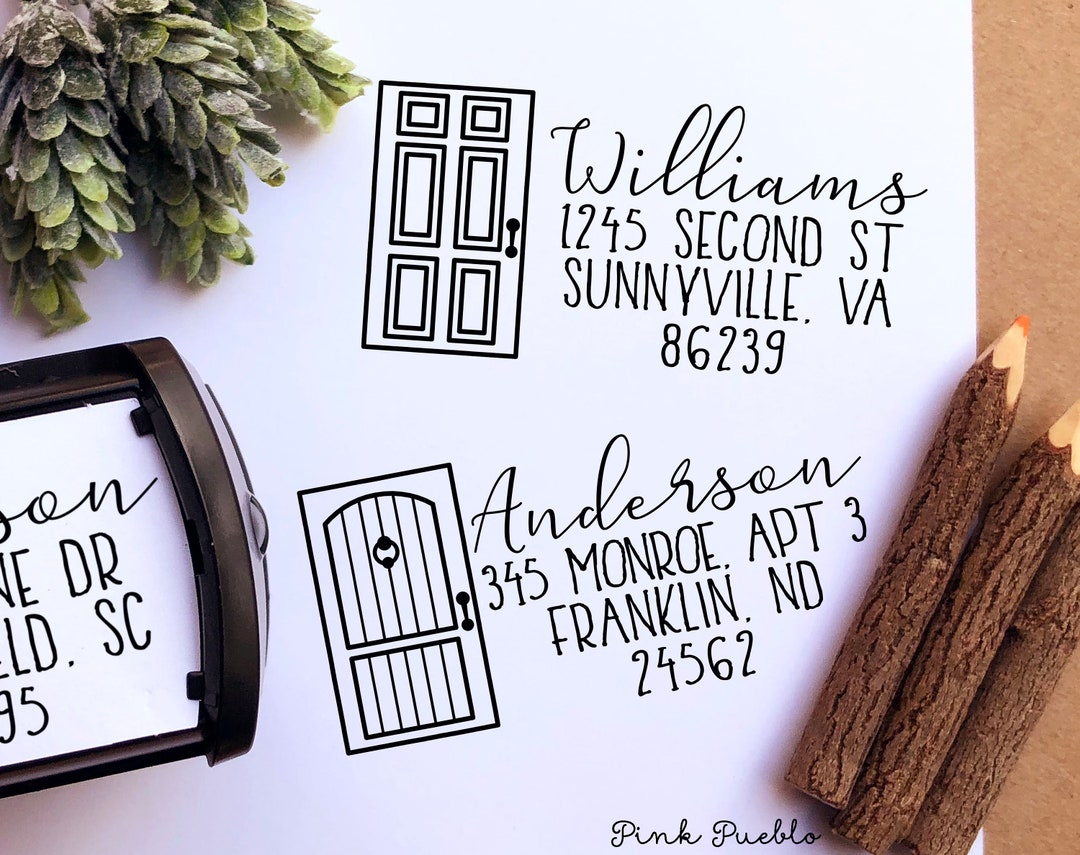 Williams
1245 SECOND ST
SUNNYVILLE, VA
86239
Anderson
345 MONROE, APT 3
FRANKLIN, ND
24562
son
NE DR
ELD, SC
95
Pink Pueblo